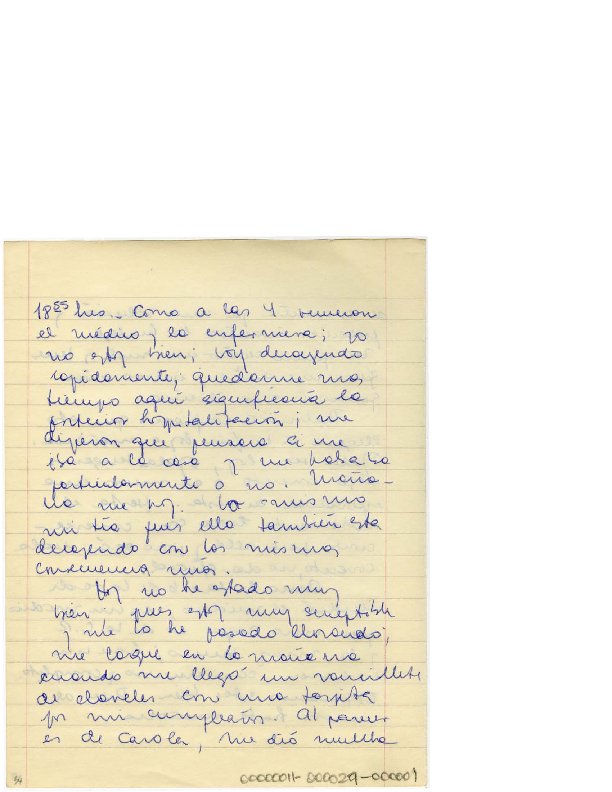 18⁵⁵ hrs. Como a las 4 vinieron
el médico y la enfermera; yo
no estoy bien; voy decayendo
rapidamente; quedarme mas
tiempo aquí significaría la
posterior hospitalización; me
dijeron que pensara si me
iba a la casa y me trataba
particularmente o no. Maña-
na me voy. Lo mismo
mi tía pues ella también está
decayendo con las mismas
consecuencias mías.
Hoy no he estado muy
bien pues estoy muy sceptible
y me la he pasado llorando;
me largué en la mañana
cuando me llegó un ramillete
de claveles con una tarjita
por mi cumpleaños Al parecer
es de Carola, me dió mucha
54
00000011-000029-000001